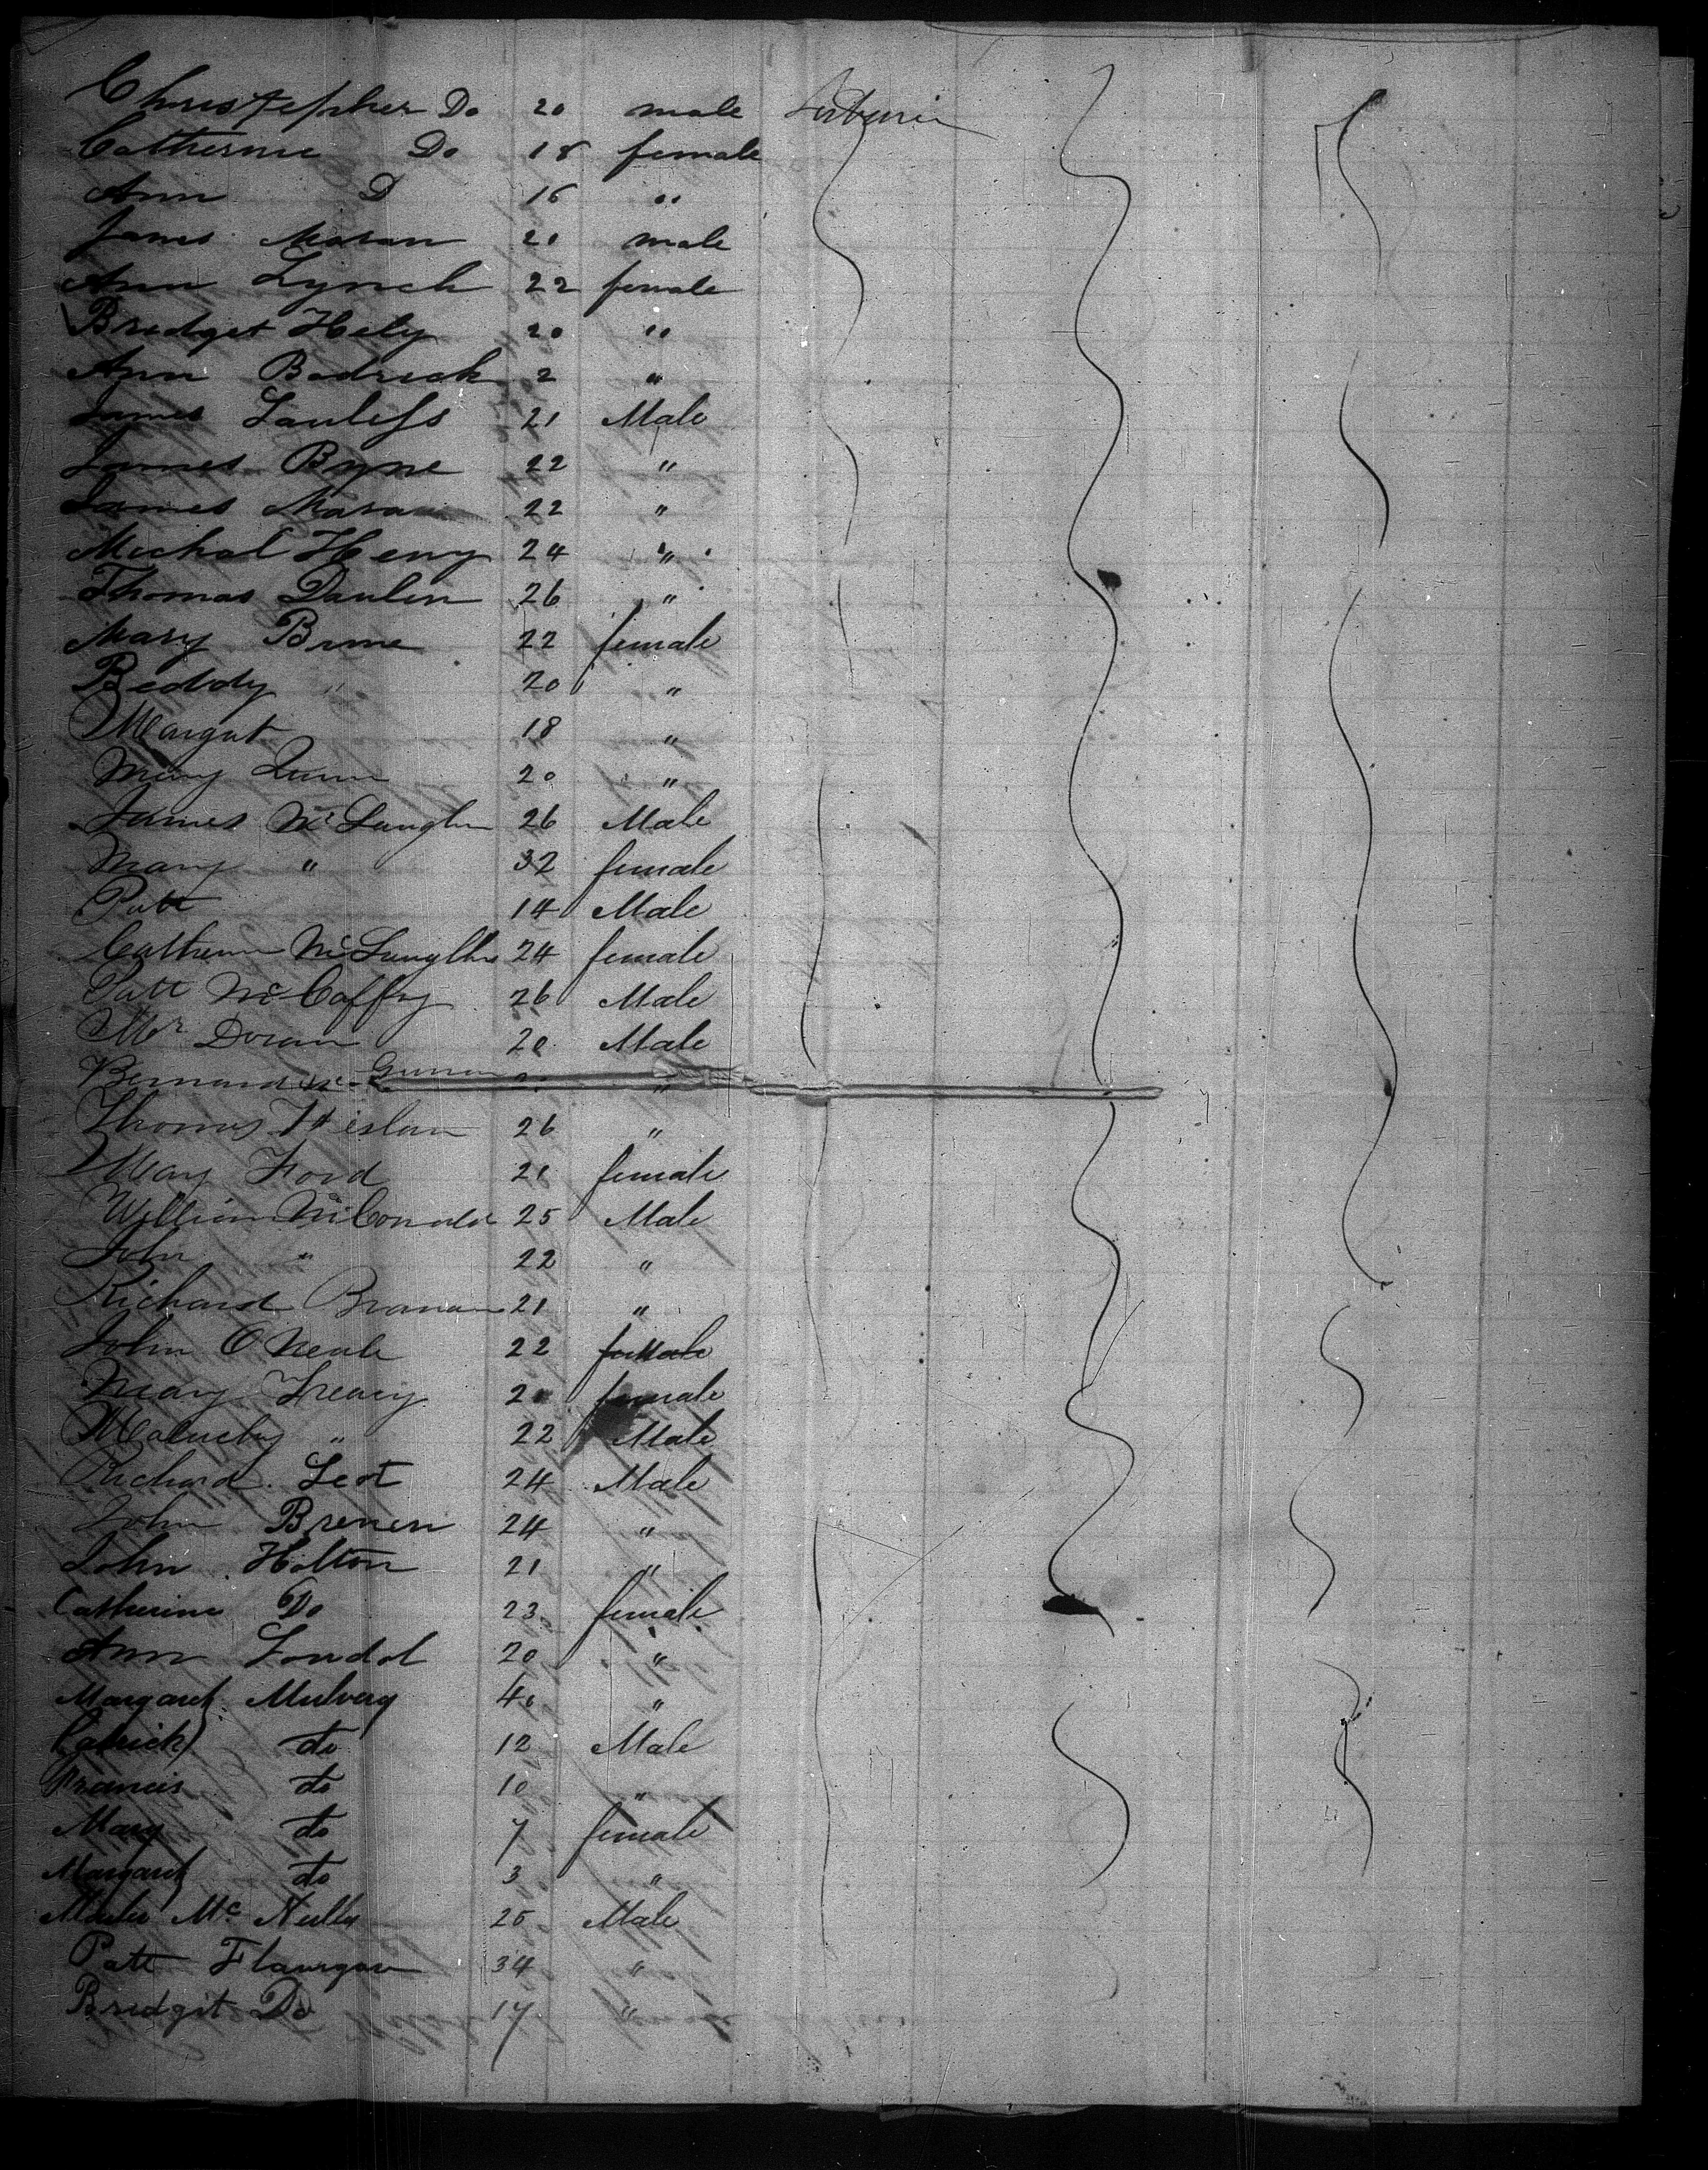 Christopher Do 20 male
Catherine Do 18 female
Ann D 16 "
James Moran 21 male
Ann Lynch 22 female
Bridget Hely 20 "
Ann Bodrick 2 "
James Lauless 21 Male
James Byrne 22 "
James 22 "
Michal Henry 24 "
Thomas Daulin 26 "
Mary Brine 22 female
Beddy " 20 "
Margat 18 "
Mary Quinn 20 "
James McLaughlin 26 Male
Mary " 32 female
Patt 14 Male
Catherin McLaughlin 24 female
Patt McCaffry 26 Male
Mr Doran 20 Male
Bernard "
Thomas Heslan 26 "
Mary Ford 21 female
William McConald 25 Male
John " 22 "
Richard Branan 21 "
John O Neale 22
Mary Treacy 20 female
" 22 Male
Richard Lest 24 Male
John Brenen 24 "
John Holton 21 "
Catherine Do 23 female
Ann Loudol 20 "
Margaret Mulveny 40 "
Patrick do 12 Male
Francis do 10 "
Mary do 7 female
Margaret do 3 "
Mc Nully 25 Male
Patt Flanigan 34 "
Bridgit Do 17 "